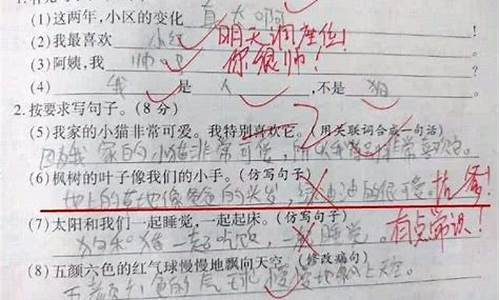 (1)这两年,小区的变化 真大啊
(2)我最喜欢 小红 明天调座位!
(3)阿姨,我 帅吧 你很帅!
(4) 我 是 人 ,不是 狗
2.按要求写句子。(8 分)
(5)我家的小猫非常可爱。我特别喜欢它。(用关联词合成一句话)
因为我家的小猫非常可爱,所以我 非常喜欢它。
(6)枫树的叶子像我们的小手。(仿写句子)
地上的草地像爸爸的头发,绿油油的很可爱。抗争!
(7)太阳和我们一起睡觉,一起起床。(仿写句子)
狗和猪一起吃饭,一起睡觉。 有点常识!
(8)五颜六色的红气球慢慢地飘向天空。(修改病句)
五颜六色的气球慢慢地飘上天空。